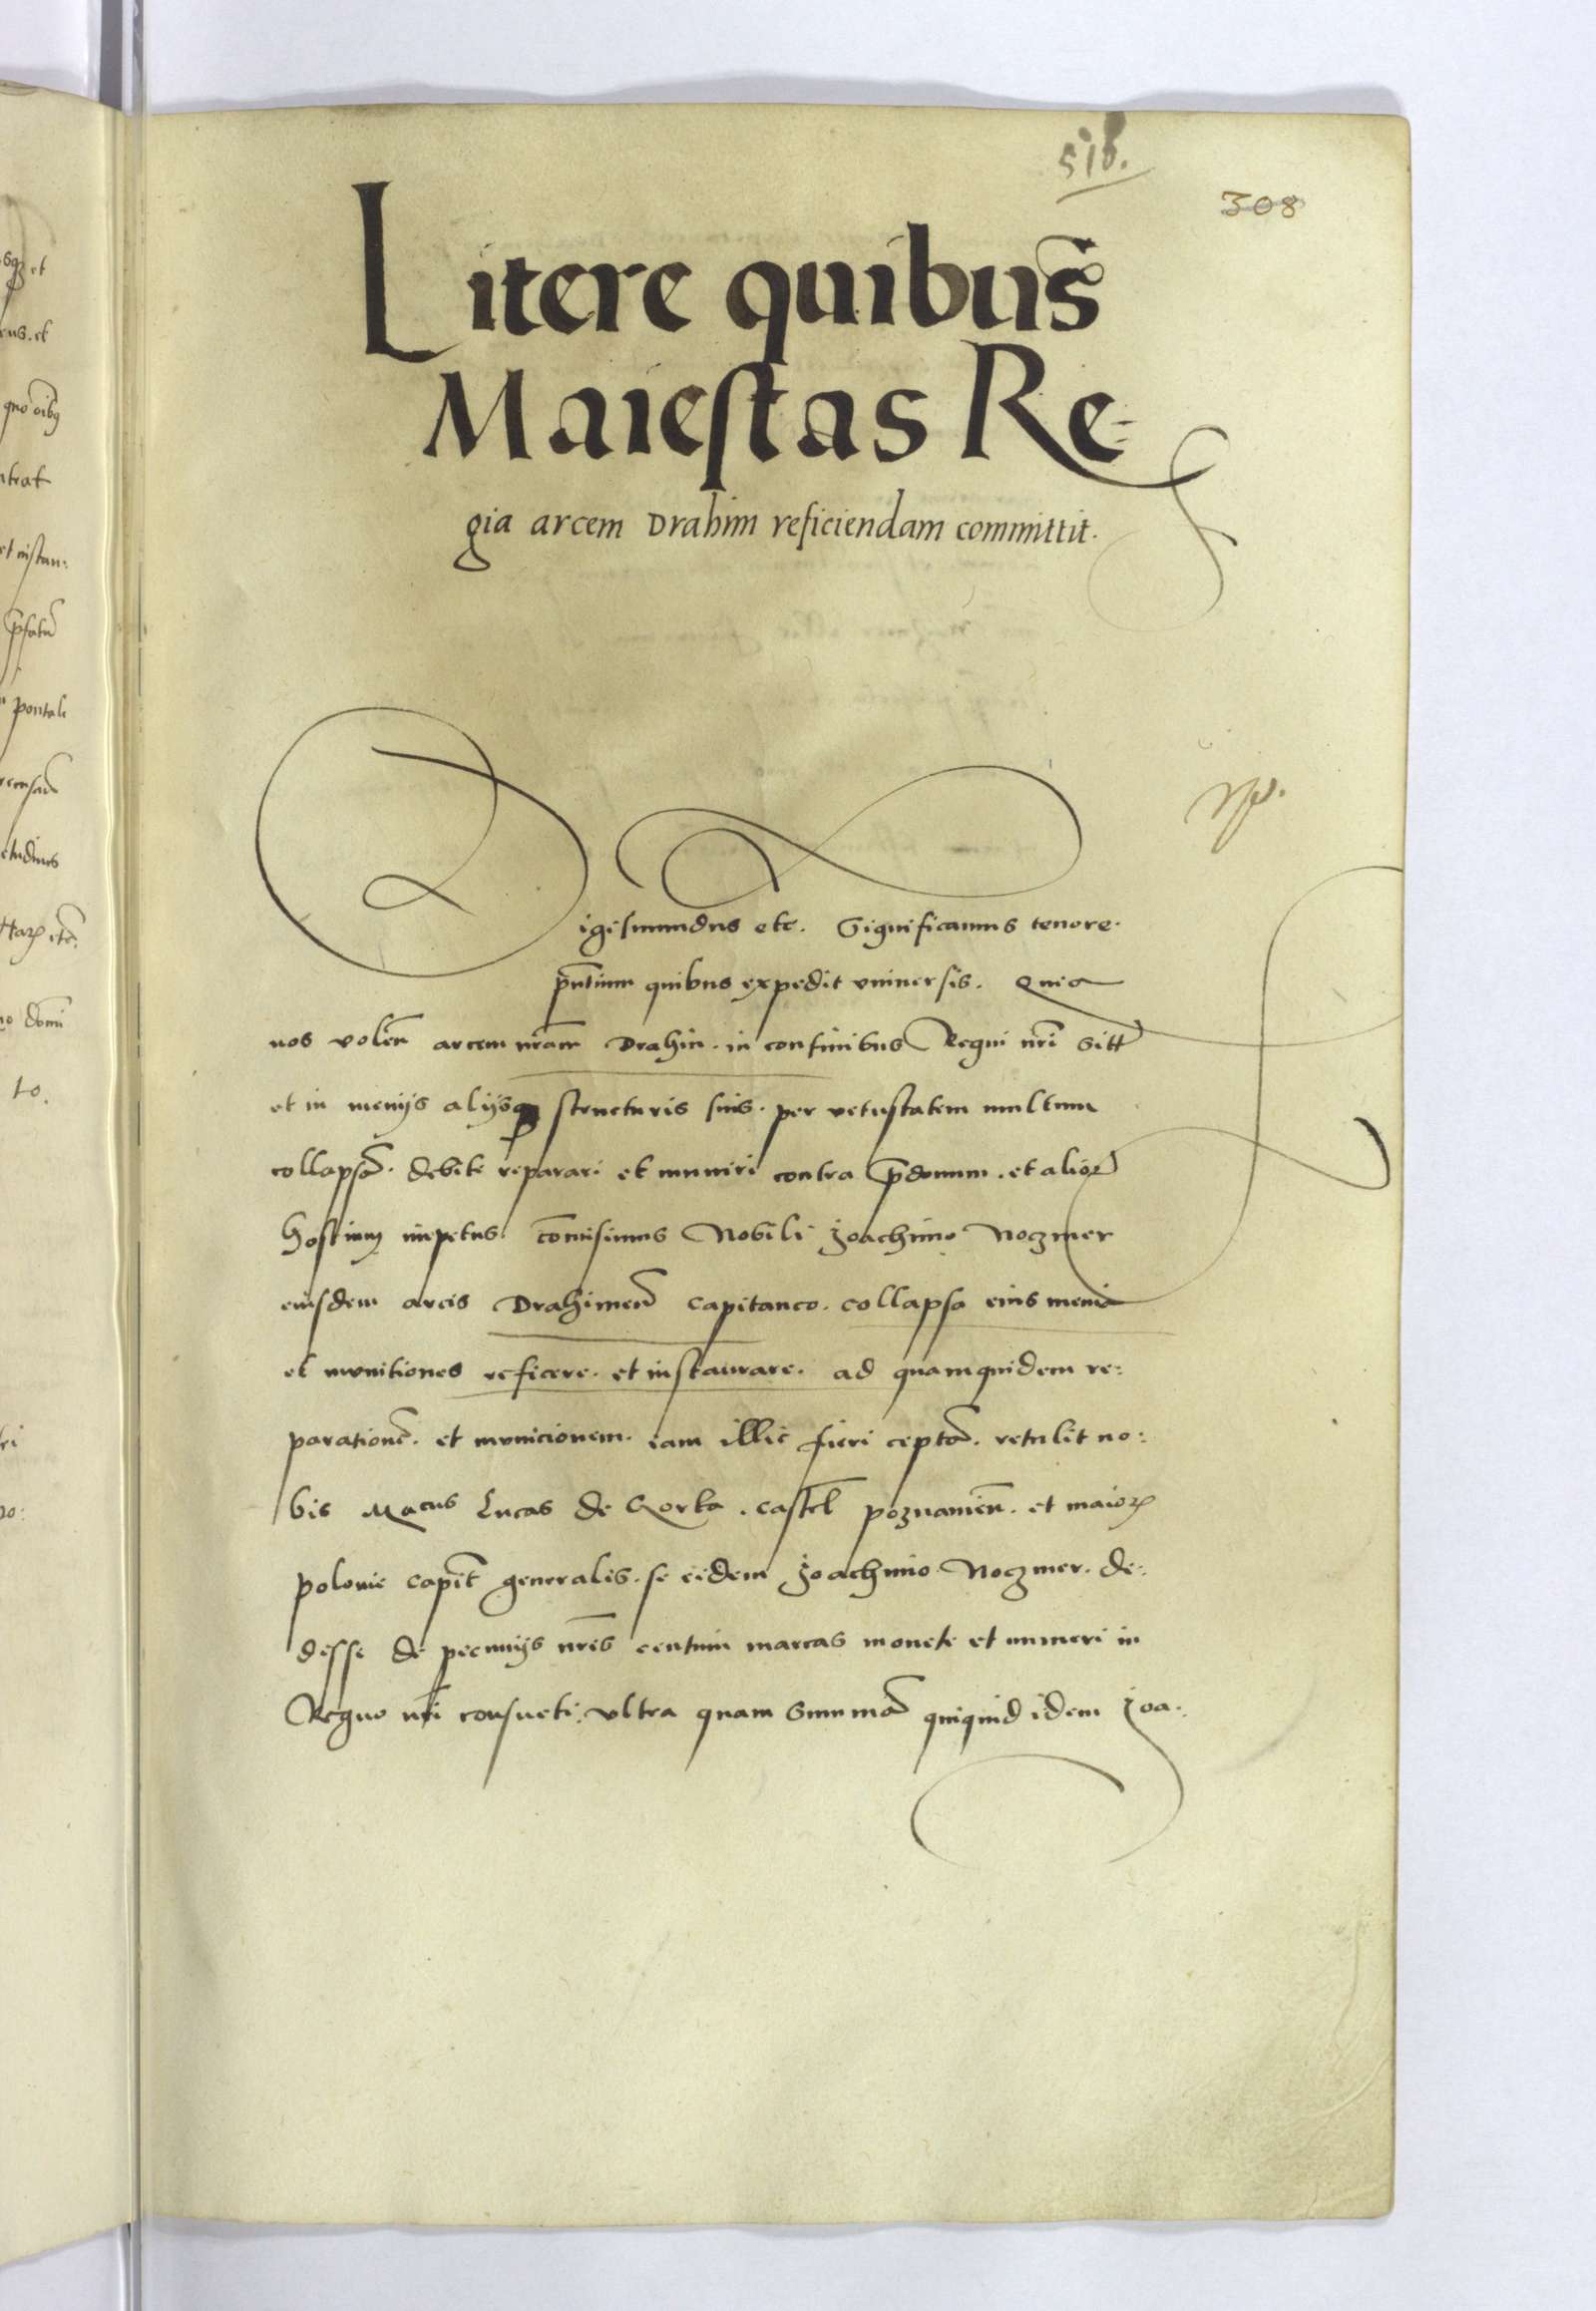 516.
308
Litere quibus
Maiestas Re-
gia arcem Drahim reficiendam committit.
Sigismundus etc. Significamus tenore.
pñtium quibus expedit vniuersis. Quia
nos voleñ arcem nr̃am Drahin. in confinibus Regni nr̃i sitt
et in menijs alijsq; structuris suis. per vetustatem multum
collapsã. debite reparari et muniri contra p̃donum. et alioꝝ
hostium impetus. com̃isimus Nobili Joachimo Noczmer
eiusdem arcis Drahimeñ capitaneo. collapsa eius menia
et munitiones reficere. et instaurare. ad quamquidem re:
parationẽ. et municionem. iam illic fieri ceptã. retulit no:
bis Mgcus Lucas de Gorka. castel̃ poznanieñ. et maioꝝ
polonie capit̃ generalis. se eidem Joachimo Noczmer. de:
desse de pecunijs nr̃is centum marcas monete et numeri in
Regno nr̃i consueti. vltra quam summã quiquid idem Joa: